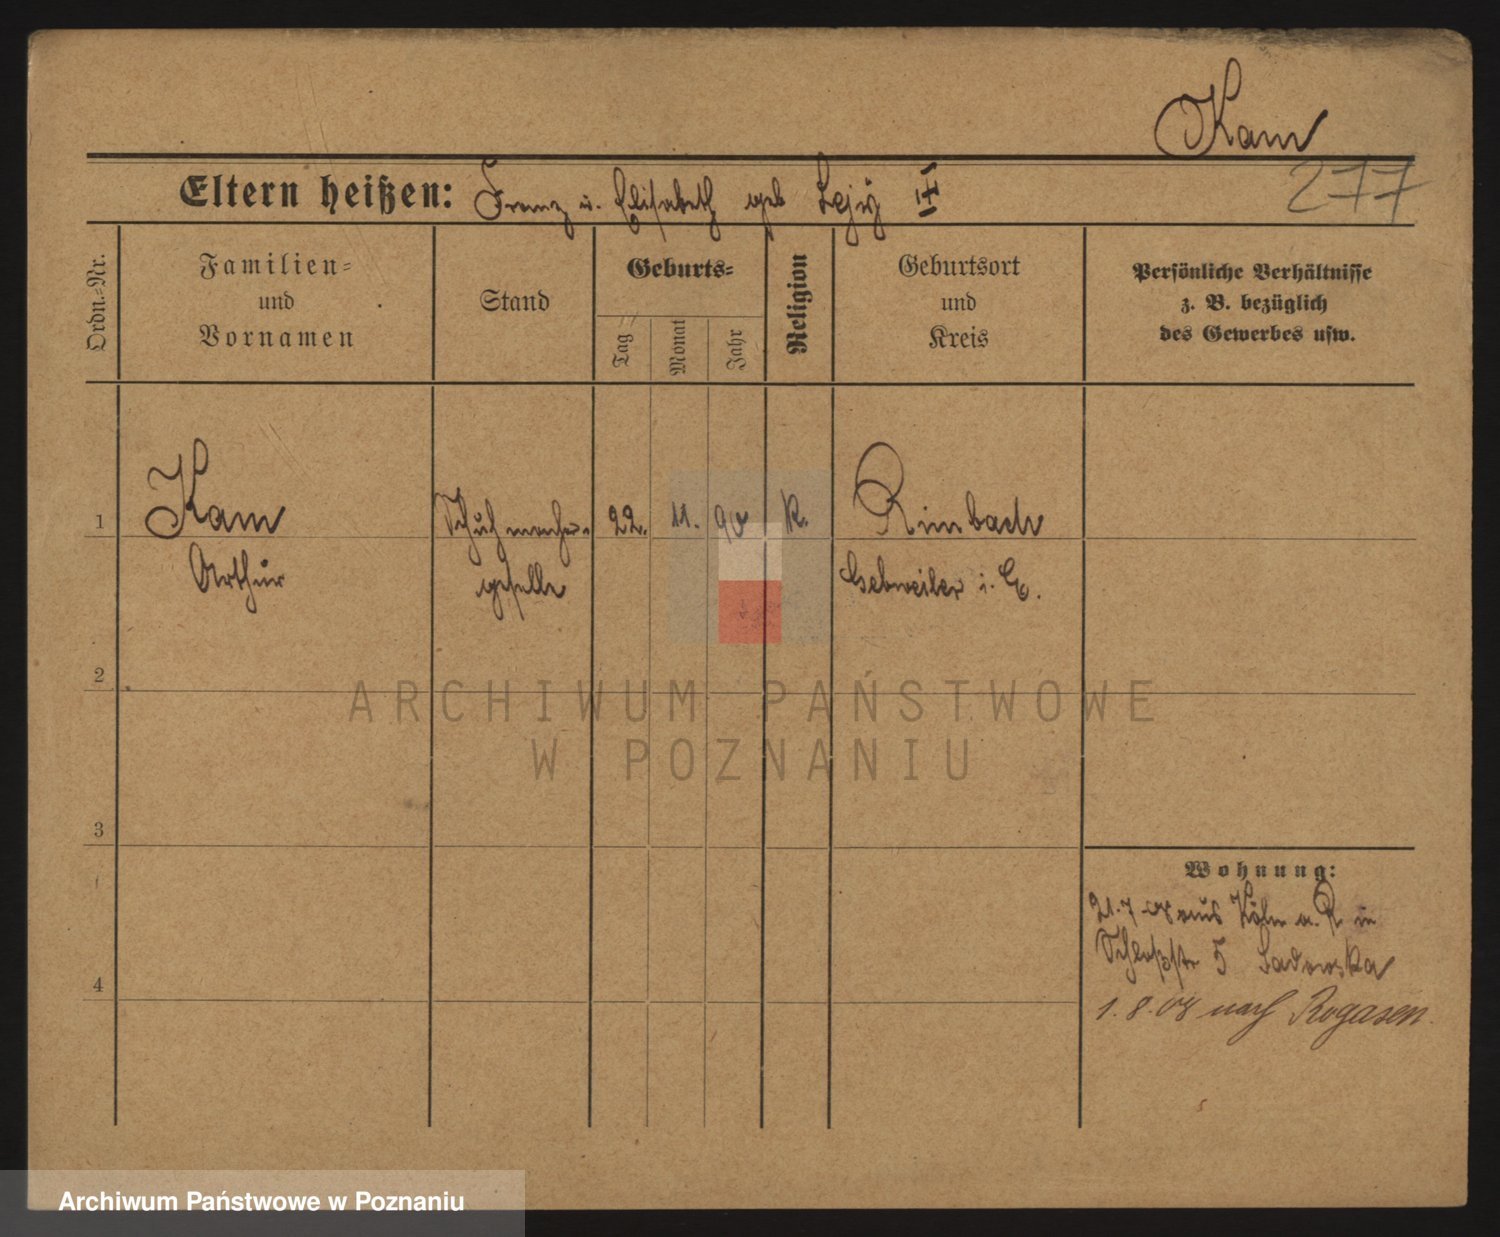 Kam
277
Eltern heißen: Franz u. Elisabeth geb
Ordn.-Nr.
Familien-
und
Vornamen
Stand
Geburts-
Tag
Monat
Jahr
Religion
Geburtsort
und
Kreis
Persönliche Verhältnisse
z. B. bezüglich
des Gewerbes usw.
1
Kam
Arthur
Schuhmacher-
geselle
22.
11.
90
K.
Rimbach
Gebweiler i. E.
2
3
4
Wohnung:
21.7.08 aus Köln a. R. in
Schloßstr 5 Sadowska
1.8.08 nach Rogasen.
ARCHIWUM PAŃSTWOWE
W POZNANIU
Archiwum Państwowe w Poznaniu